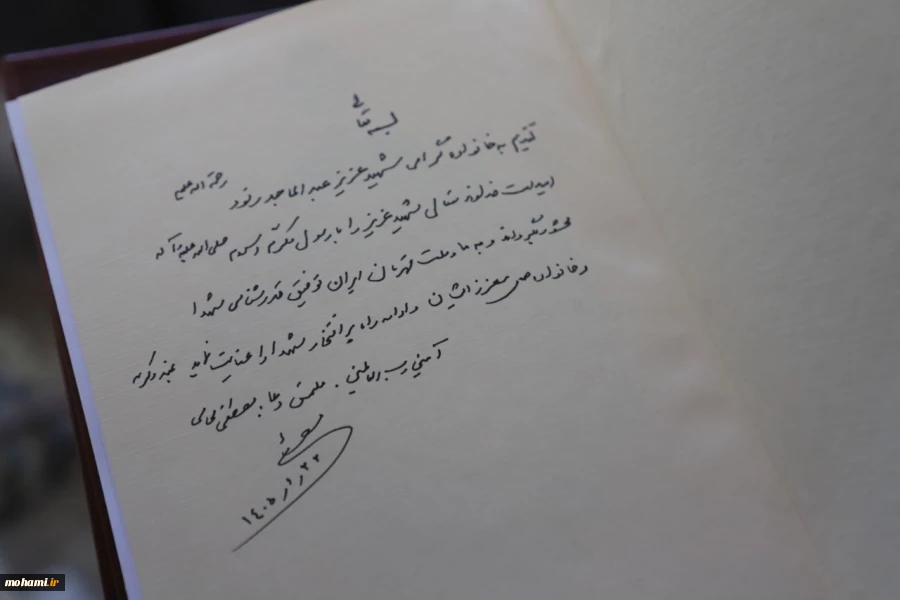 بسمه تعالی
تقدیم به خانواده گرامی شهید عزیز عبدالماجد رحمة الله علیه
امید است خداوند متعال شهید عزیز را با رسول مکرم اسلام صلی الله علیه و آله
محشور بگرداند و به ما و ملت قهرمان ایران توفیق قدرشناسی شهدا
و خانواده های معزز ایشان و ادامه راه پر افتخار شهدا را عنایت نماید بمنه و کرمه
آمین رب العالمین. ملتمس دعا. مصطفی محامی
۱۴۰۵
mohami.ir